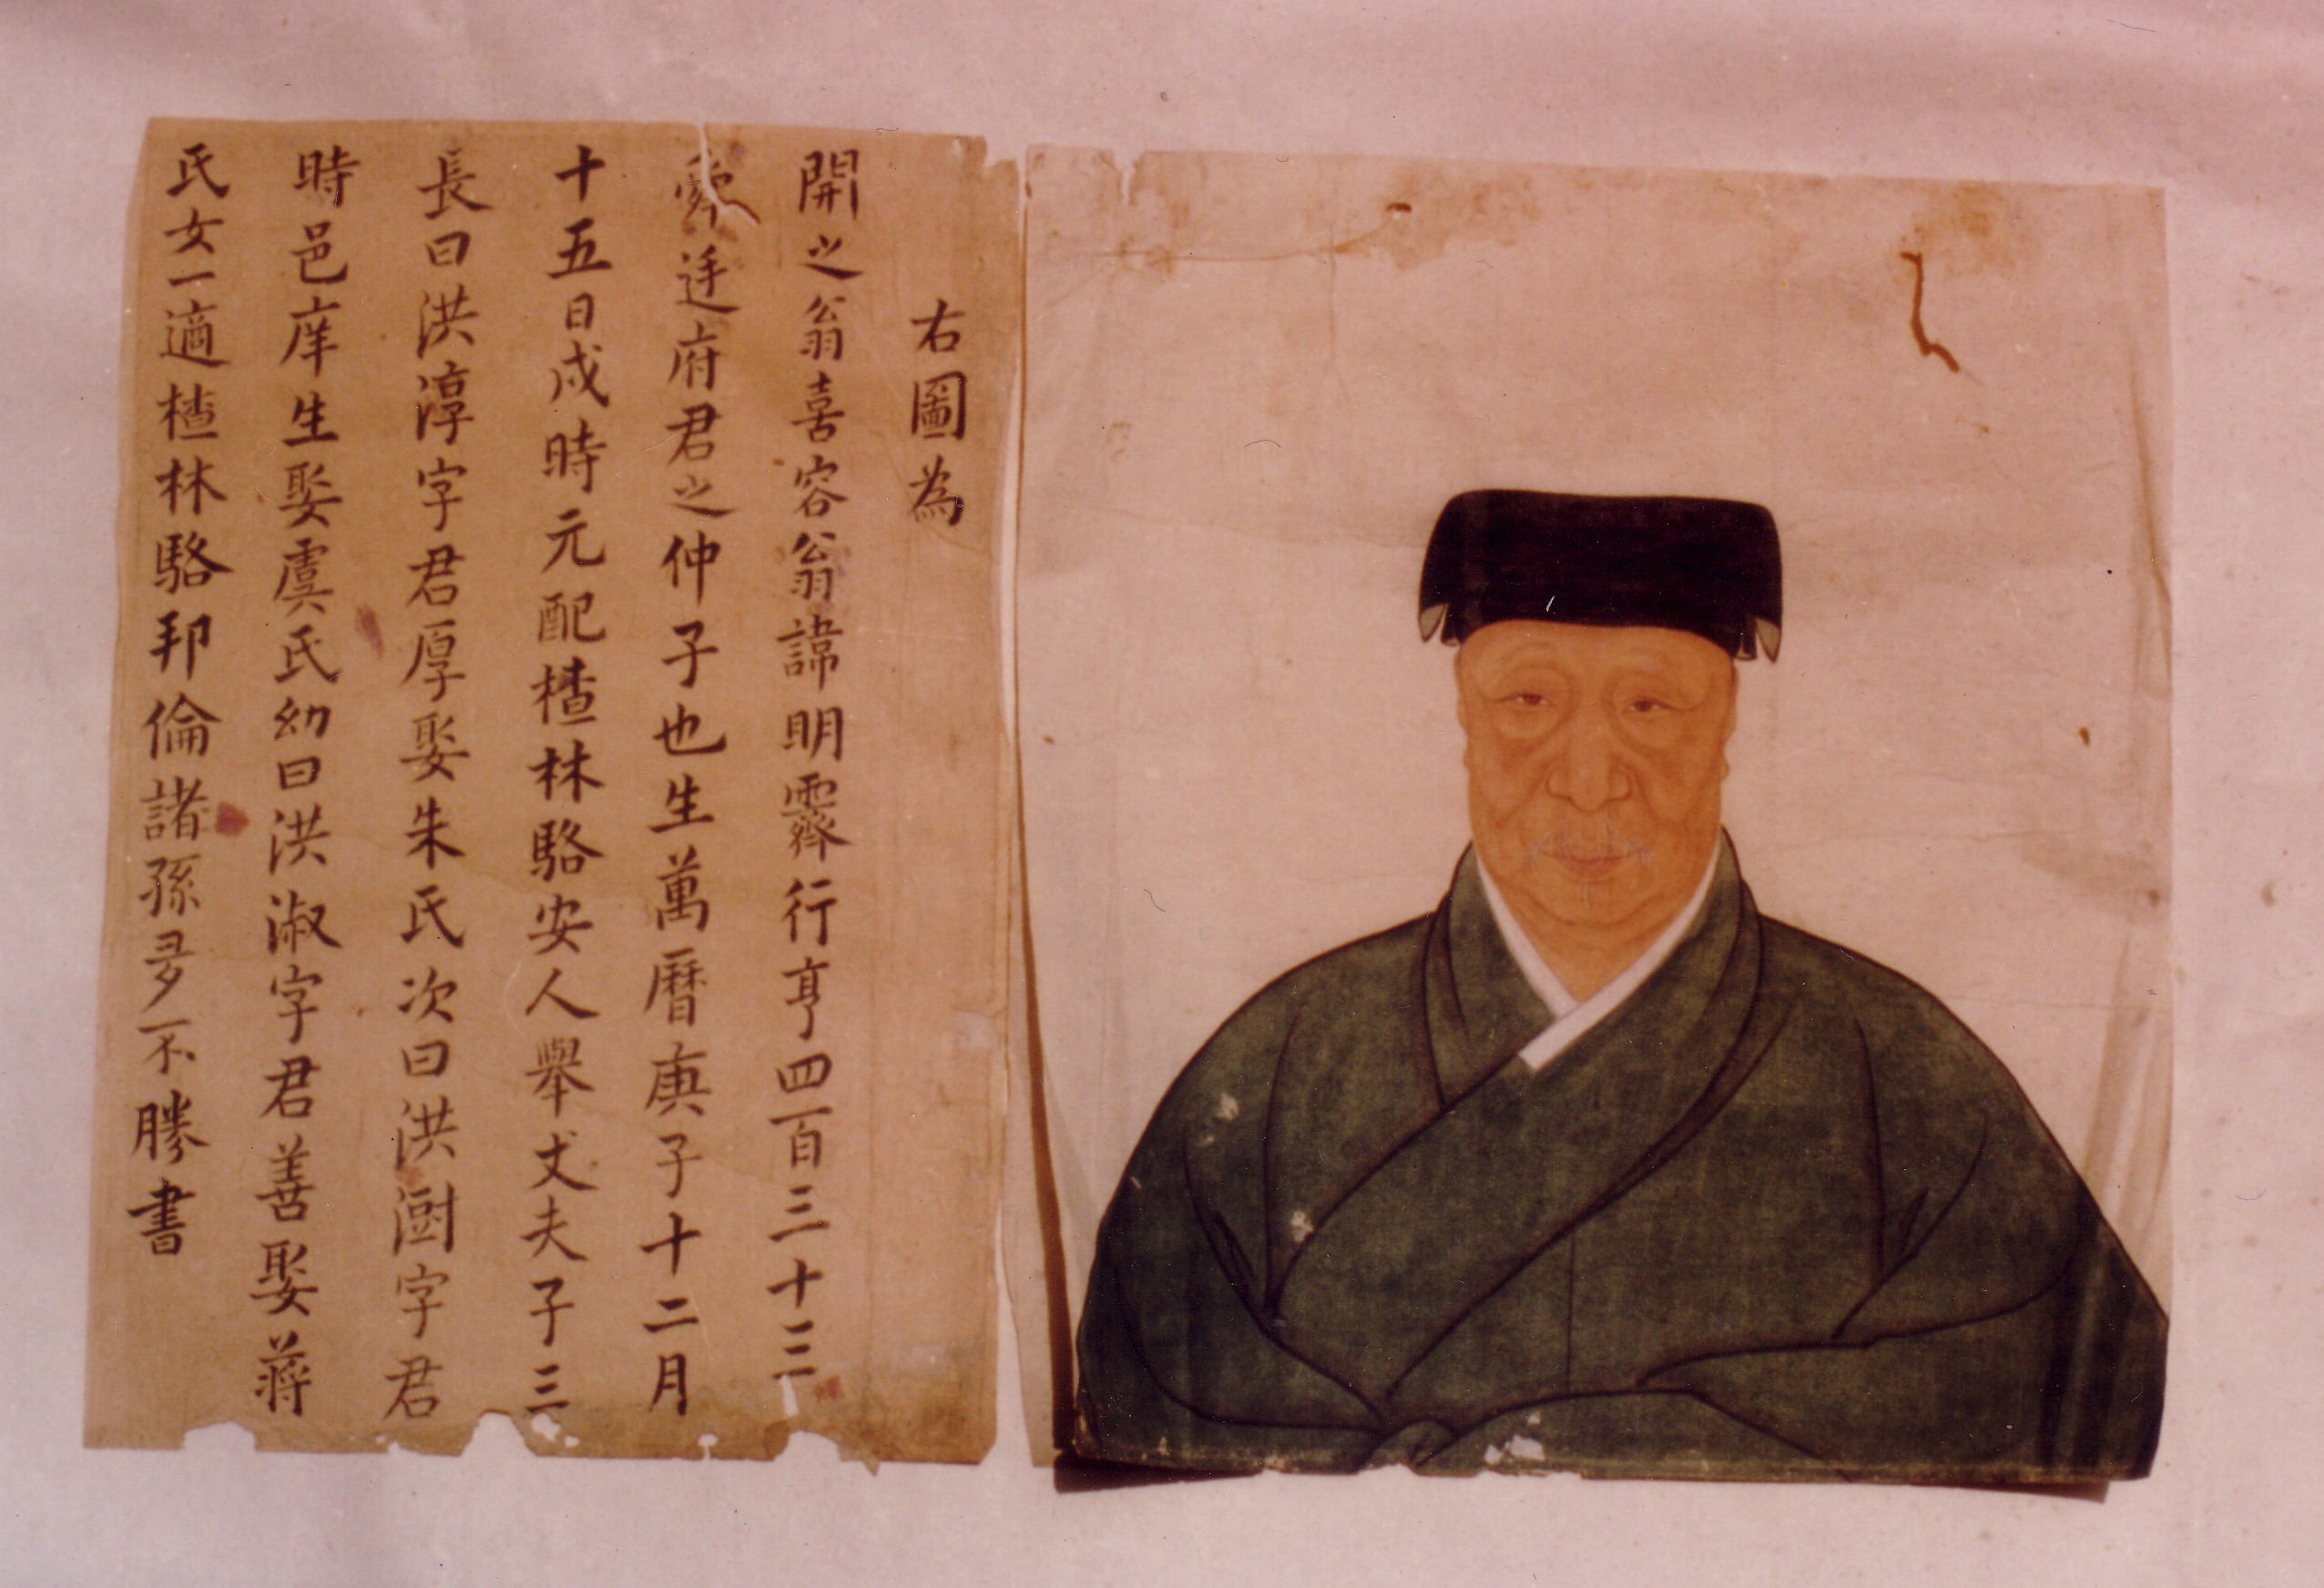 右圖為
開之翁喜容翁諱明霽行亨四百三十三
舜廷府君之仲子也生萬曆庚子十二月
十五日戌時元配楂林駱安人舉丈夫子三
長曰洪淳字君厚娶朱氏次曰洪澍字君
時邑庠生娶虞氏幼曰洪淑字君善娶蔣
氏女一適楂林駱邦倫諸孫多不勝書